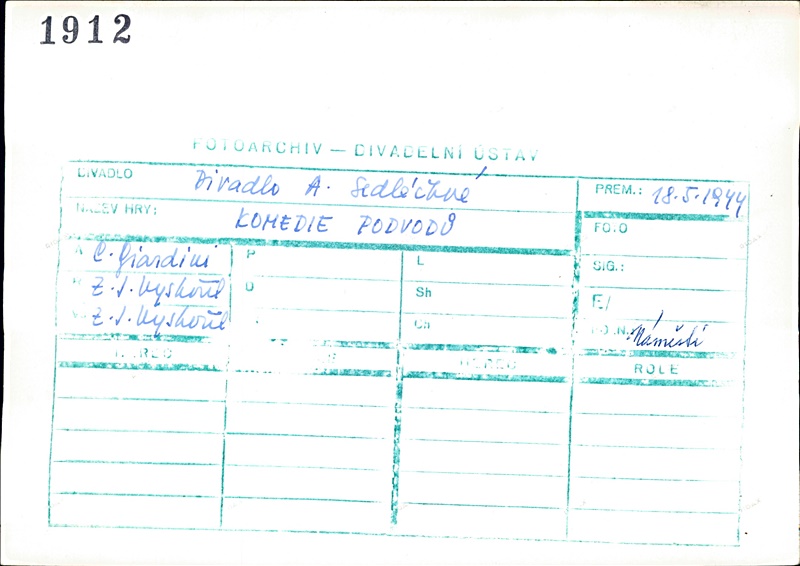 1912
FOTOARCHIV — DIVADELNÍ ÚSTAV
DIVADLO Divadlo A. Sedláčkové PREM.: 18.5.1944
NÁZEV HRY: KOMEDIE PODVODŮ FOTO
A C. Giardini P L SIG.:
R Z. J. Vyskočil D Sh E/
V Z. J. Vyskočil Ch POZN.: Náměstí
HEREC HEREC ROLE